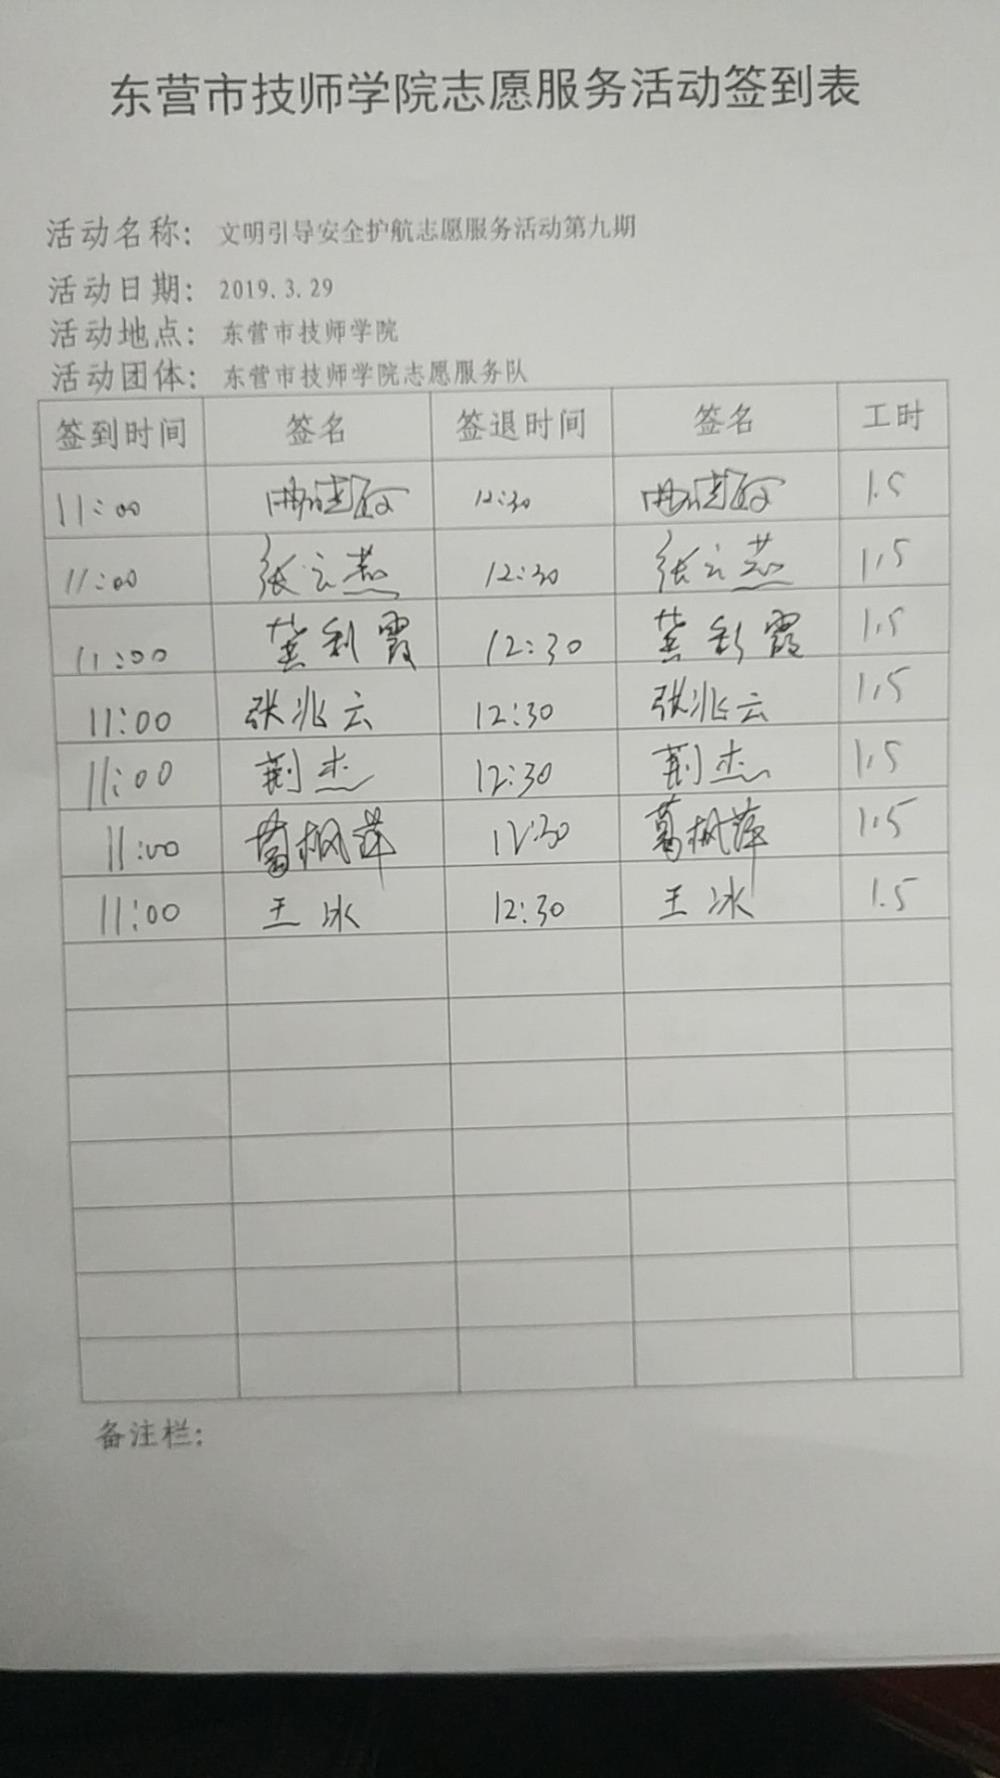 东营市技师学院志愿服务活动签到表
活动名称: 文明引导安全护航志愿服务活动第九期
活动日期: 2019.3.29
活动地点: 东营市技师学院
活动团体: 东营市技师学院志愿服务队
签到时间 签名 签退时间 签名 工时
11:00 12:30 1.5
11:00 张云燕 12:30 张云燕 1.5
11:00 12:30 1.5
11:00 张兆云 12:30 张兆云 1.5
11:00 荆杰 12:30 荆杰 1.5
11:00 葛枫萍 12:30 葛枫萍 1.5
11:00 王冰 12:30 王冰 1.5
备注栏: